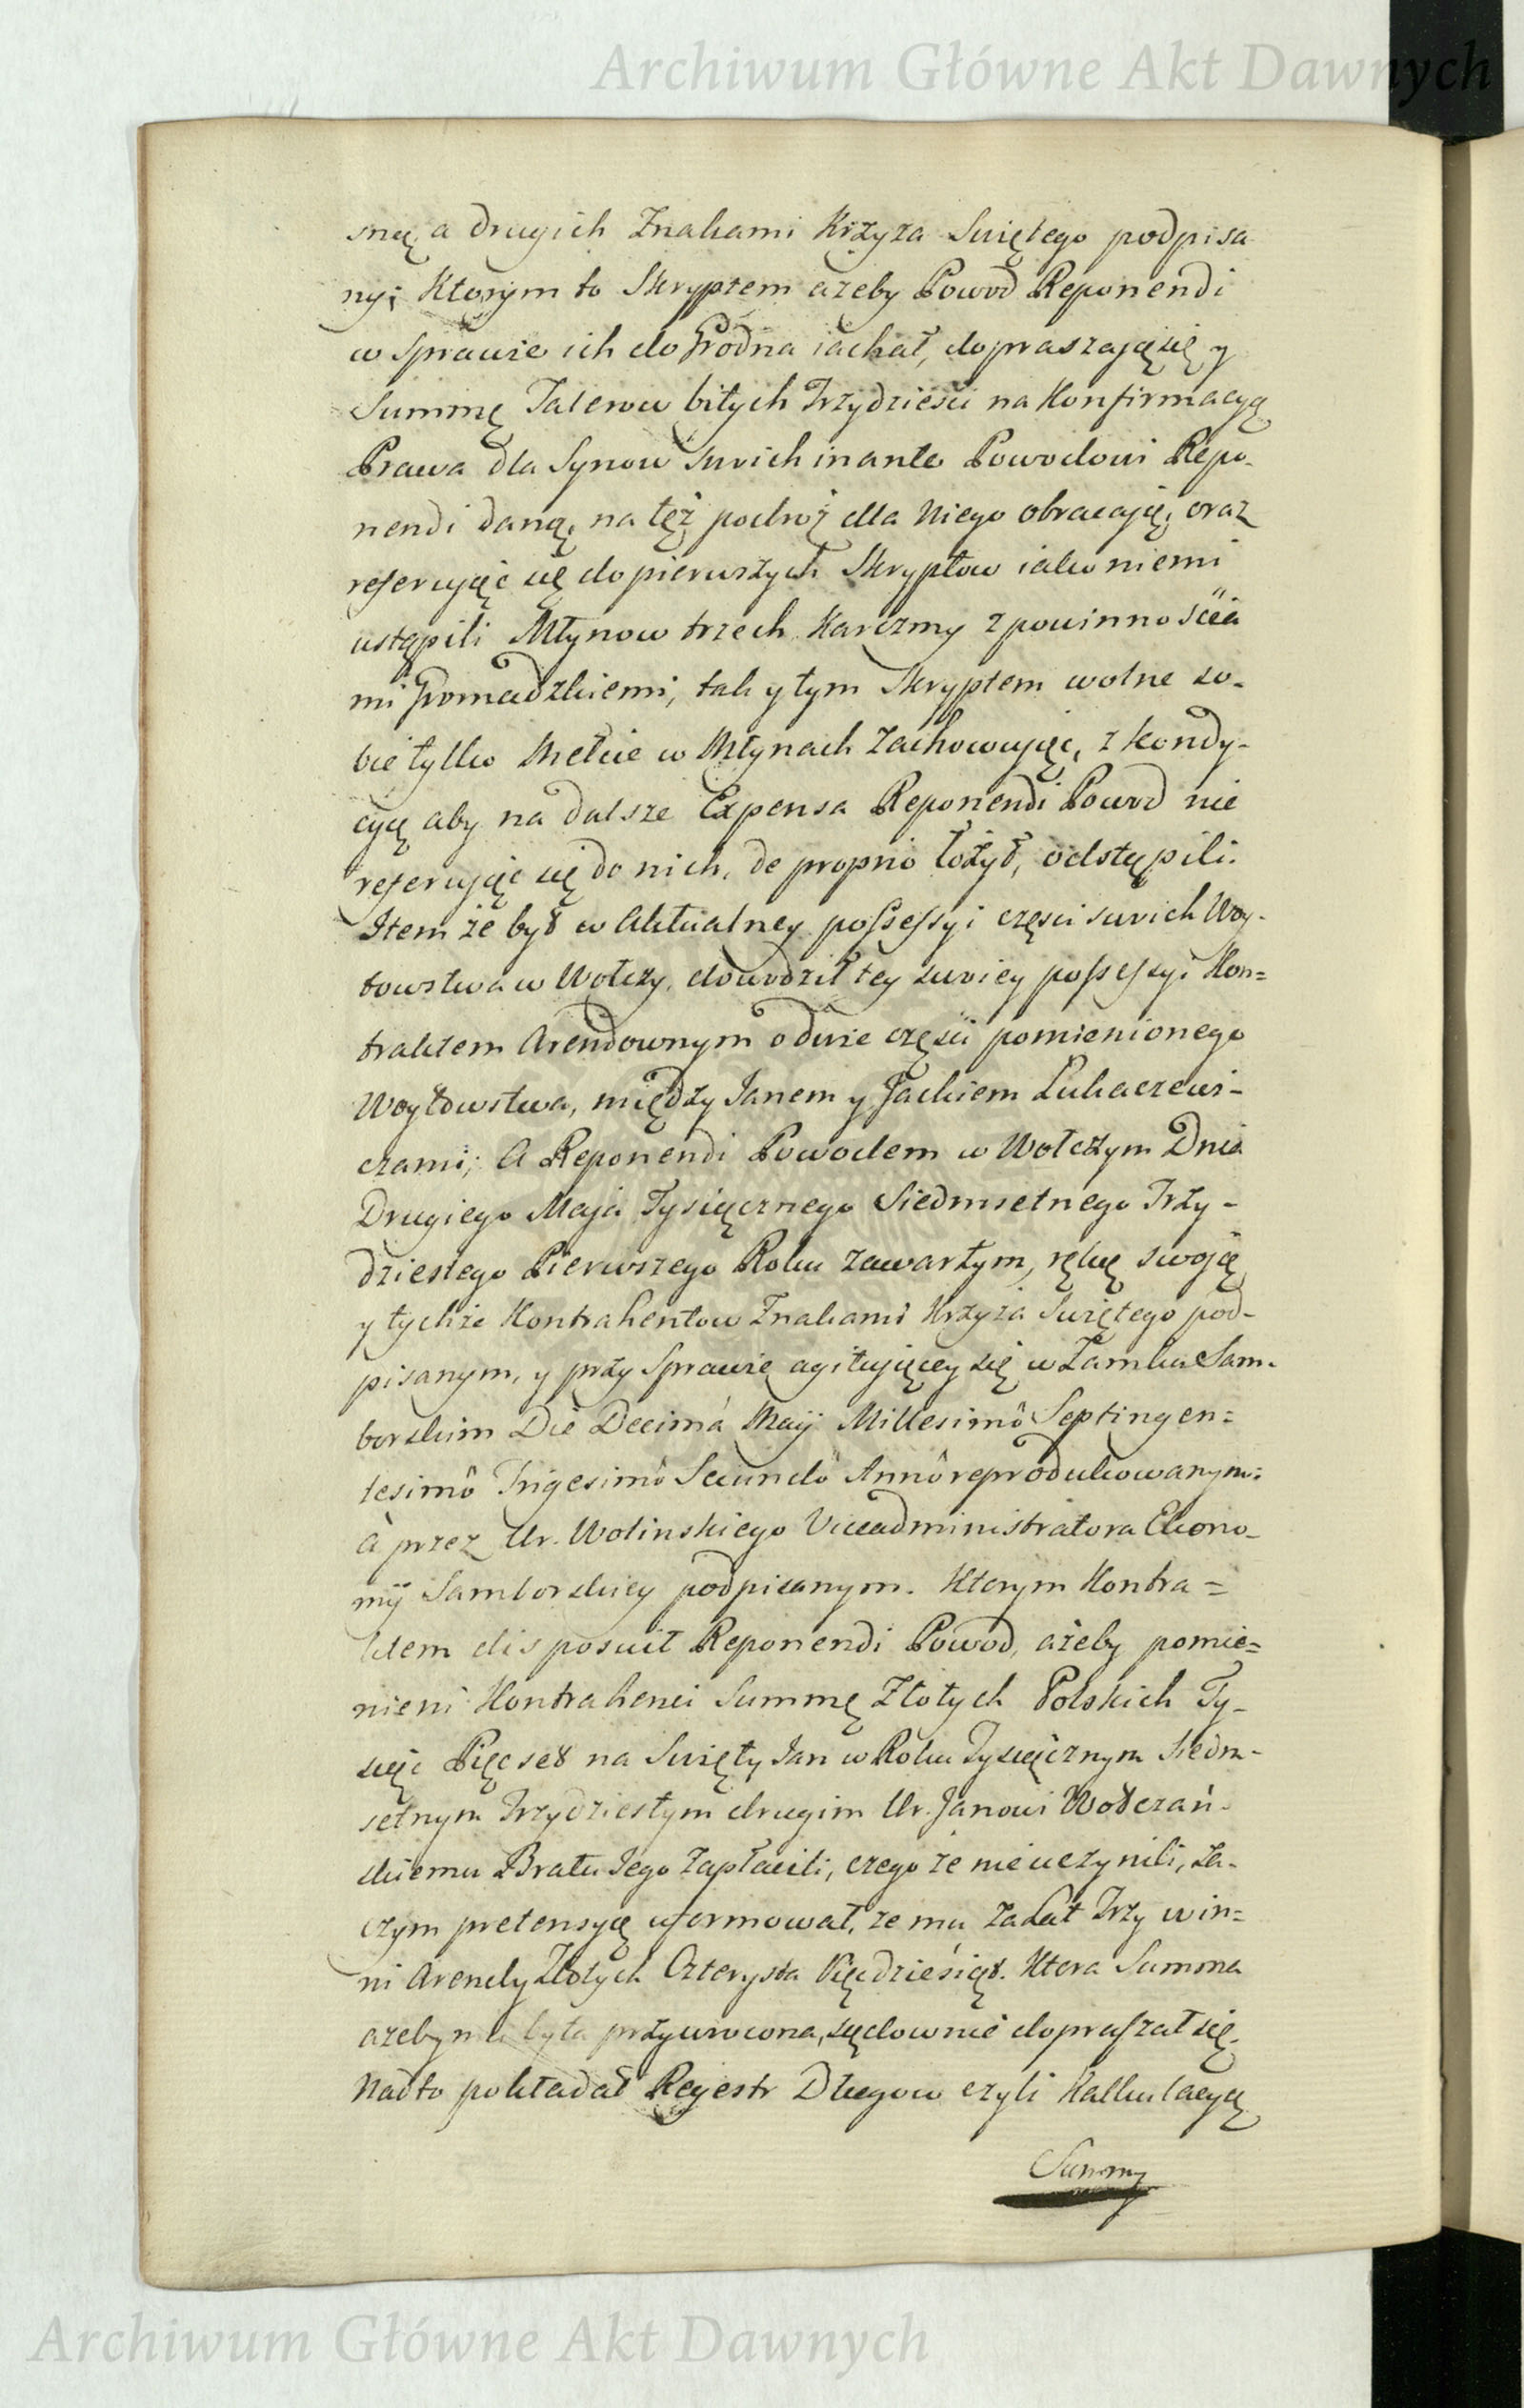 Archiwum Główne Akt Dawnych
sną a drugich Znakami Krzyza Swiętego podpisa
ny; Ktorym to Skryptem azeby Powod Reponendi
w Sprawie ich do Grodna iachał, dopraszaią się y
Summę Talerow bitych Trzydziesci na Konfirmacyą
Prawa dla Synow swich inante Powodowi Repo-
nendi daną, na tęż podroż dla Niego obracaią, oraz
referuiąc się do pierwszych Skryptow iako niemi
ustąpili Młynow trzech Karczmy z powinnościa
mi Gromadzkiemi, tak y tym Skryptem wolne so-
bie tylko Mełcie w Młynach zachowuiąc, z kondy-
cyą aby na dalsze Expensa Reponendi Powod nie
referuiąc się do nich, de proprio łożył, odstąpili.
Item że był w Aktualney possessyi częsci swich Woy-
towstwa w Wołczy, dowodził tey swoiey possessyi Kon=
traktem Arendownym o dwie części pomienionego
Woytowstwa, między Janem y Jackiem Lukaczewi-
czami; A Reponendi Powodem w Wołczym Dnia
Drugiego Maja Tysiącznego Siedmsetnego Trzy-
dziestego Pierwszego Roku zawartym, ręką swoią
y tychże Kontrahentow Znakami Krzyża Swiętego pod-
pisanym, y przy Sprawie agituiącey się w Zamku Sam-
borskim Die Decimá Maij Millesimô Septingen=
tesimô Trigesimô Secundô Annô reprodukowanym:
à przez Ur. Wolinskiego Viceadministratora Ekono-
mij Samborskiey podpisanym. Ktorym Kontra=
ktem disposuit Reponendi Powod, ażeby pomie=
nieni Kontrahenci Summę Złotych Polskich Ty-
siąc Pięcset na Swięty Jan w Roku Tysiącznym Siedm-
setnym Trzydziestym drugim Ur. Janowi Wołczań-
skiemu Bratu Jego zapłacili, czego że nie uczynili, za-
czym pretensyą uformował, że mu za Lat Trzy win=
ni Arendy Złotych Czterysta Pięćdziesiąt. Ktora Summa
azeby mu była przywrocona, sądownie dopraszał się.
Nadto pokładał Rejestr Długow czyli Kalkulacyą
Summy
Archiwum Główne Akt Dawnych